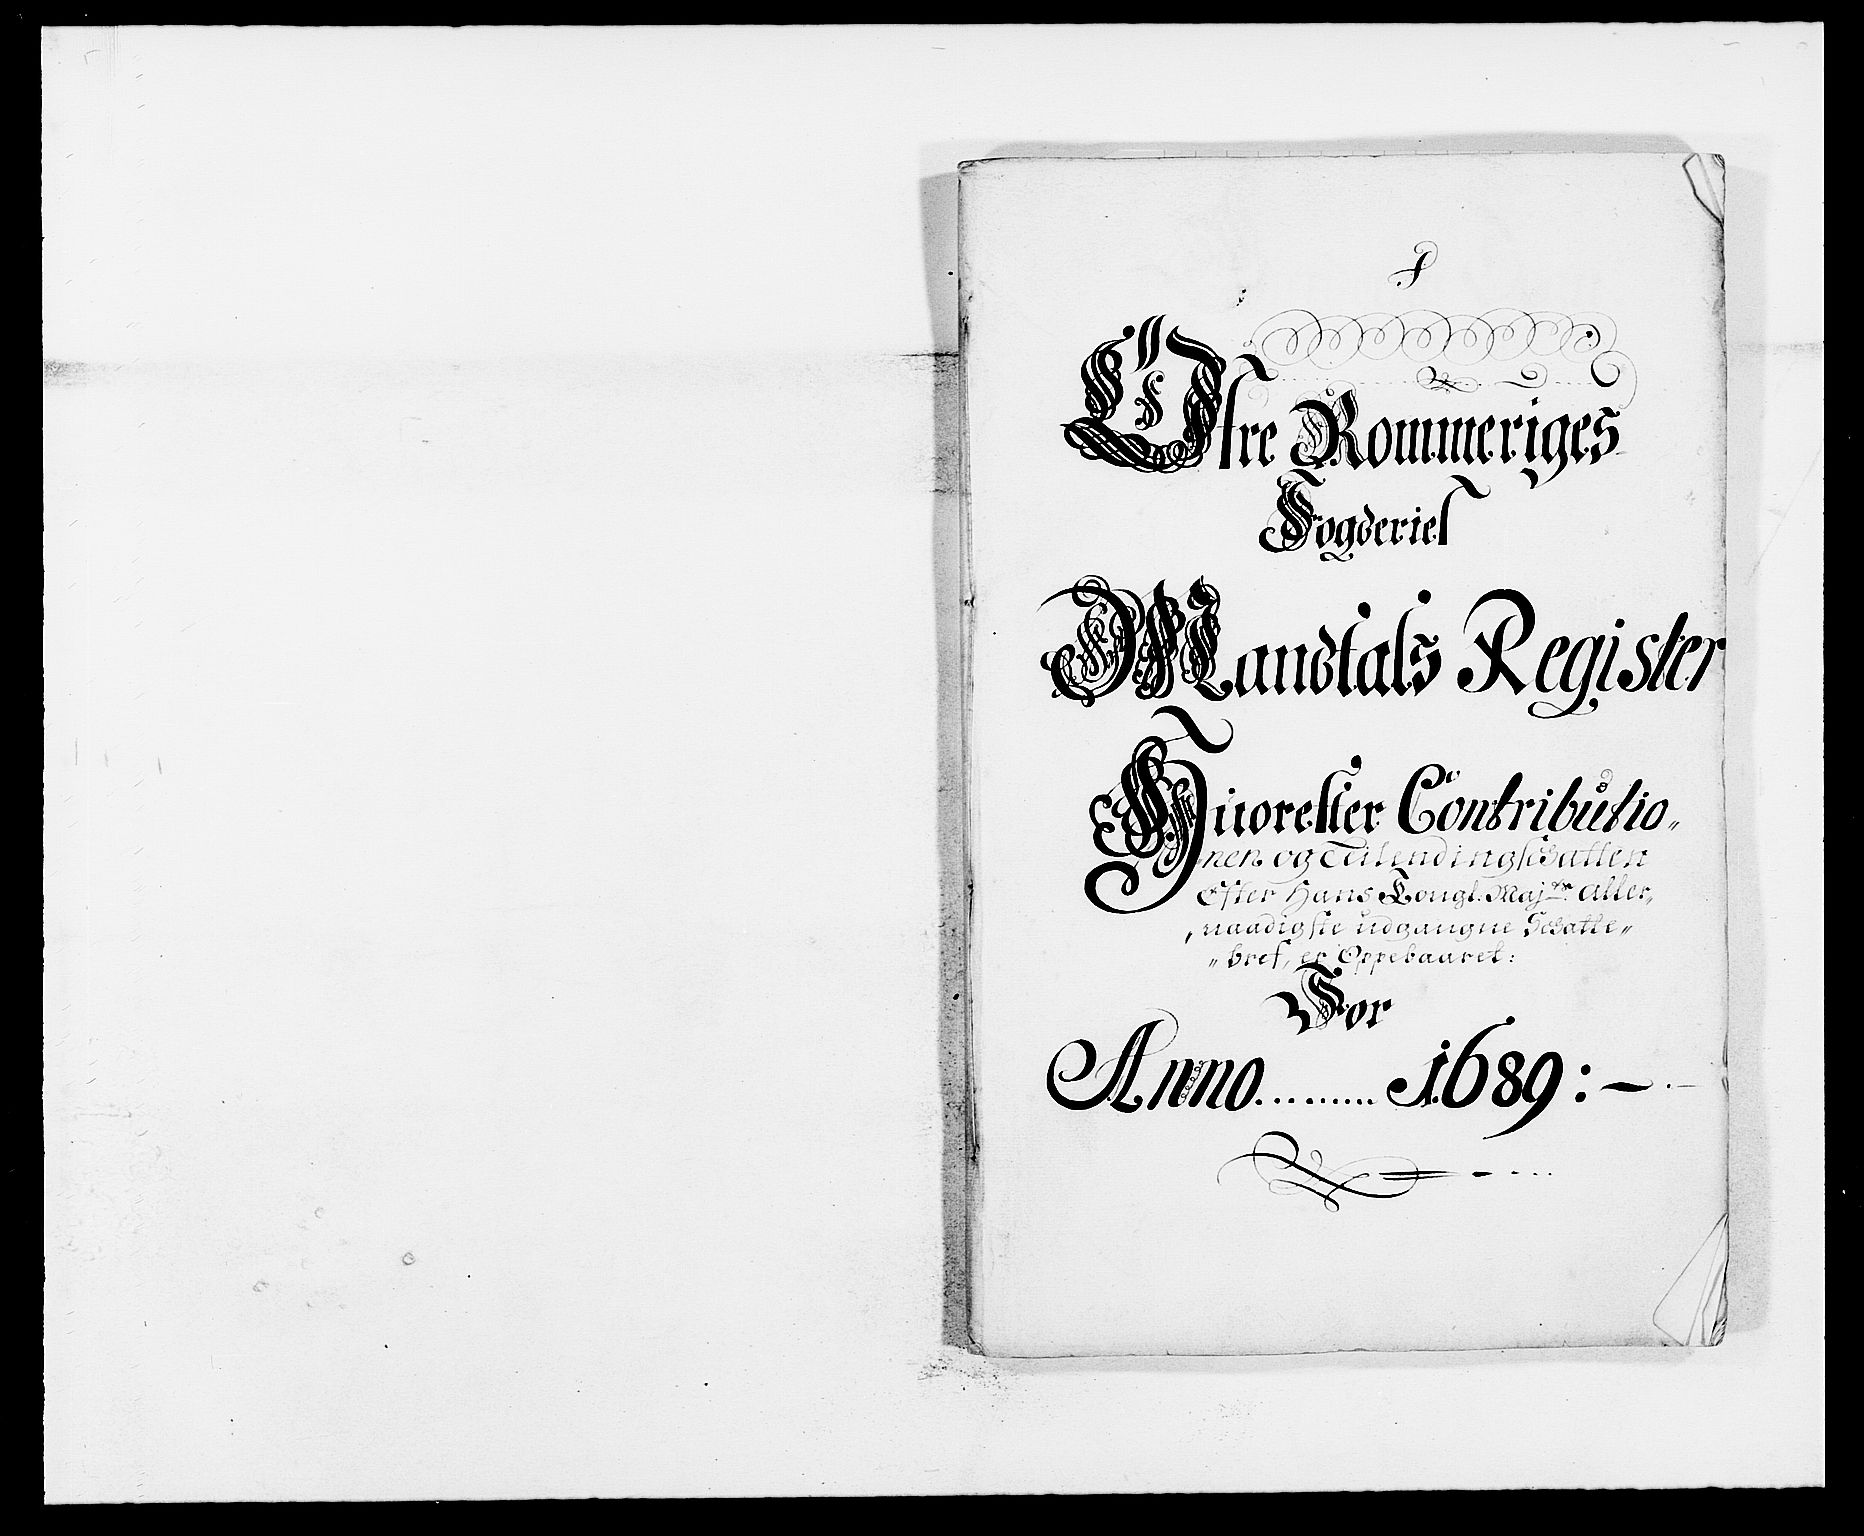 Øfre Rommeriges
Fogderiet
Mandtals Register
Huorefter Contributio„
nen og Tilendingschatten
Efter Hans Kongl. Majts aller„
„naadigste udgangne Schatte„
„bref, er Oppebaaret:
For
Anno......... 1689:-